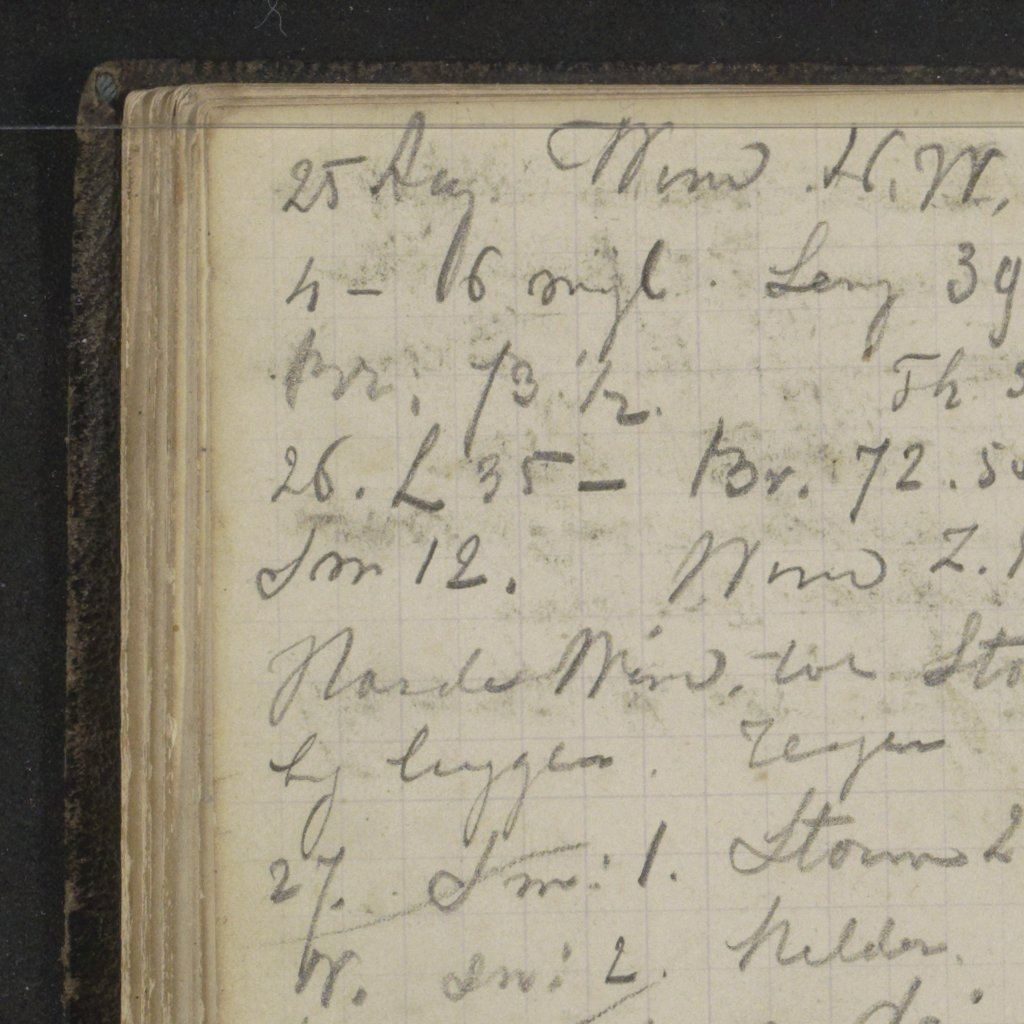 25 Aug. Wind N. W,
4 – 6 mijl. Leng 39
Br: 73 1/2. Th
26. L 35 – Br. 72.5
Sm 12. Wind Z.
Harde Wind, tot Sto
by leggen. Regen
27. Sm: 1. Storm 2
W. Sm: 2. Helder.